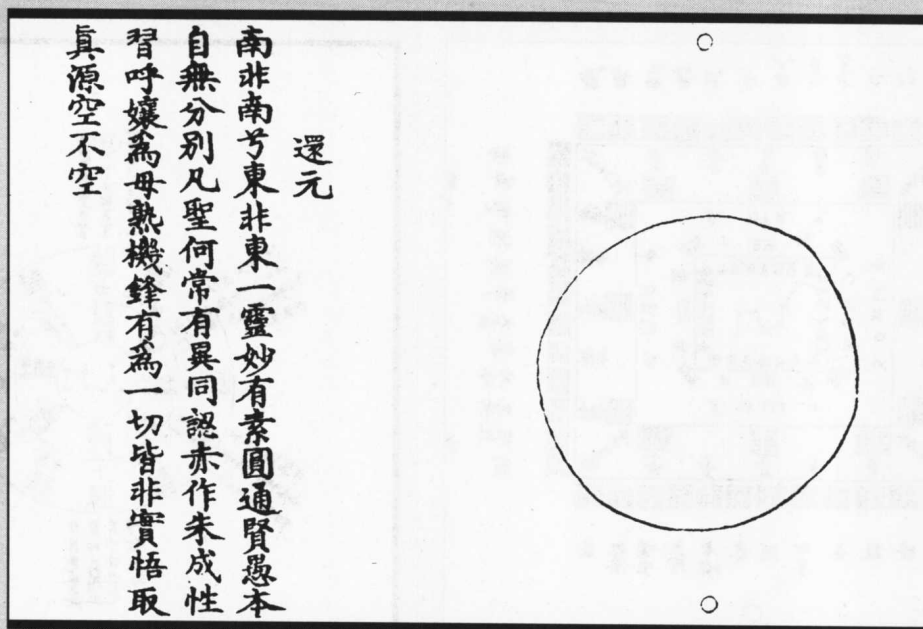 還元
南非南兮東非東一靈妙有素圓通賢愚本
自無分別凡聖何常有異同認赤作朱成性
習呼孃為母熟機鋒有為一切皆非實悟取
真源空不空